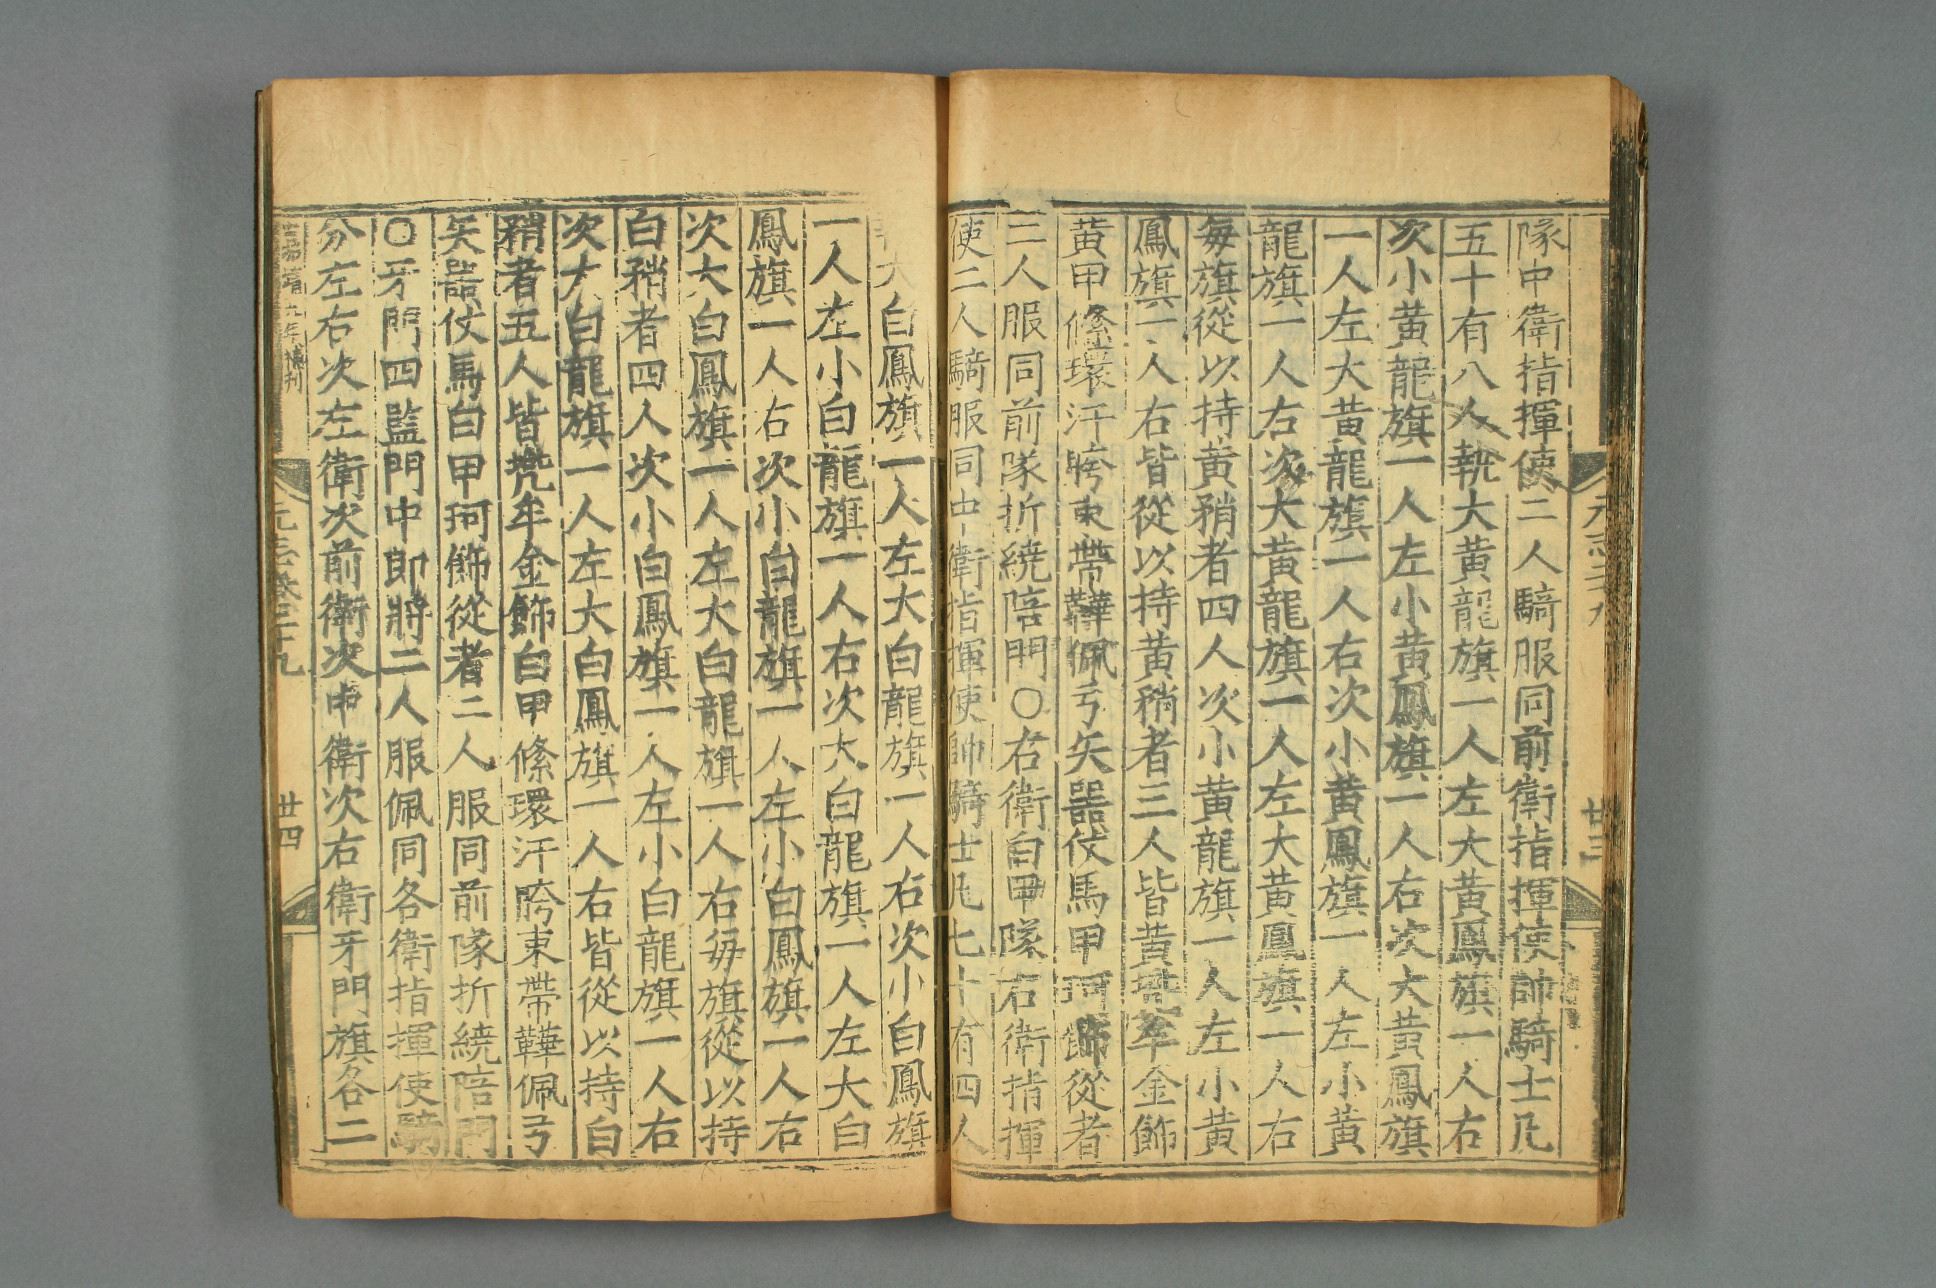 元志二十九
廿三
隊中衛指揮使二人騎服同前衛指揮使帥騎士凡
五十有八人執大黃龍旗一人左大黃鳳旗一人右
次小黃龍旗一人左小黃鳳旗一人右次大黃鳳旗
一人左大黃龍旗一人右次小黃鳳旗一人左小黃
龍旗一人右次大黃龍旗一人左大黃鳳旗一人右
每旗從以持黃矟者四人次小黃龍旗一人左小黃
鳳旗一人右皆從以持黃矟者三人皆黃兠牟金飾
黃甲絛環汗胯束帶鞾佩弓矢器仗馬甲珂飾從者
三人服同前隊折繞陪門〇右衛白甲隊右衛指揮
使二人騎服同中衛指揮使帥騎士凡七十有四人
大白鳳旗一人左大白龍旗一人右次小白鳳旗
一人左小白龍旗一人右次大白龍旗一人左大白
鳳旗一人右次小白龍旗一人左小白鳳旗一人右
次大白鳳旗一人左大白龍旗一人右每旗從以持
白矟者四人次小白鳳旗一人左小白龍旗一人右
次大白龍旗一人左大白鳳旗一人右皆從以持白
矟者五人皆兠牟金飾白甲絛環汗胯束帶鞾佩弓
矢器仗馬白甲珂飾從者二人服同前隊折繞陪門
〇牙門四監門中郎將二人服佩同各衛指揮使騎
分左右次左衛次前衛次中衛次右衛牙門旗各二
嘉靖九年補刊
元志卷二十九
廿四